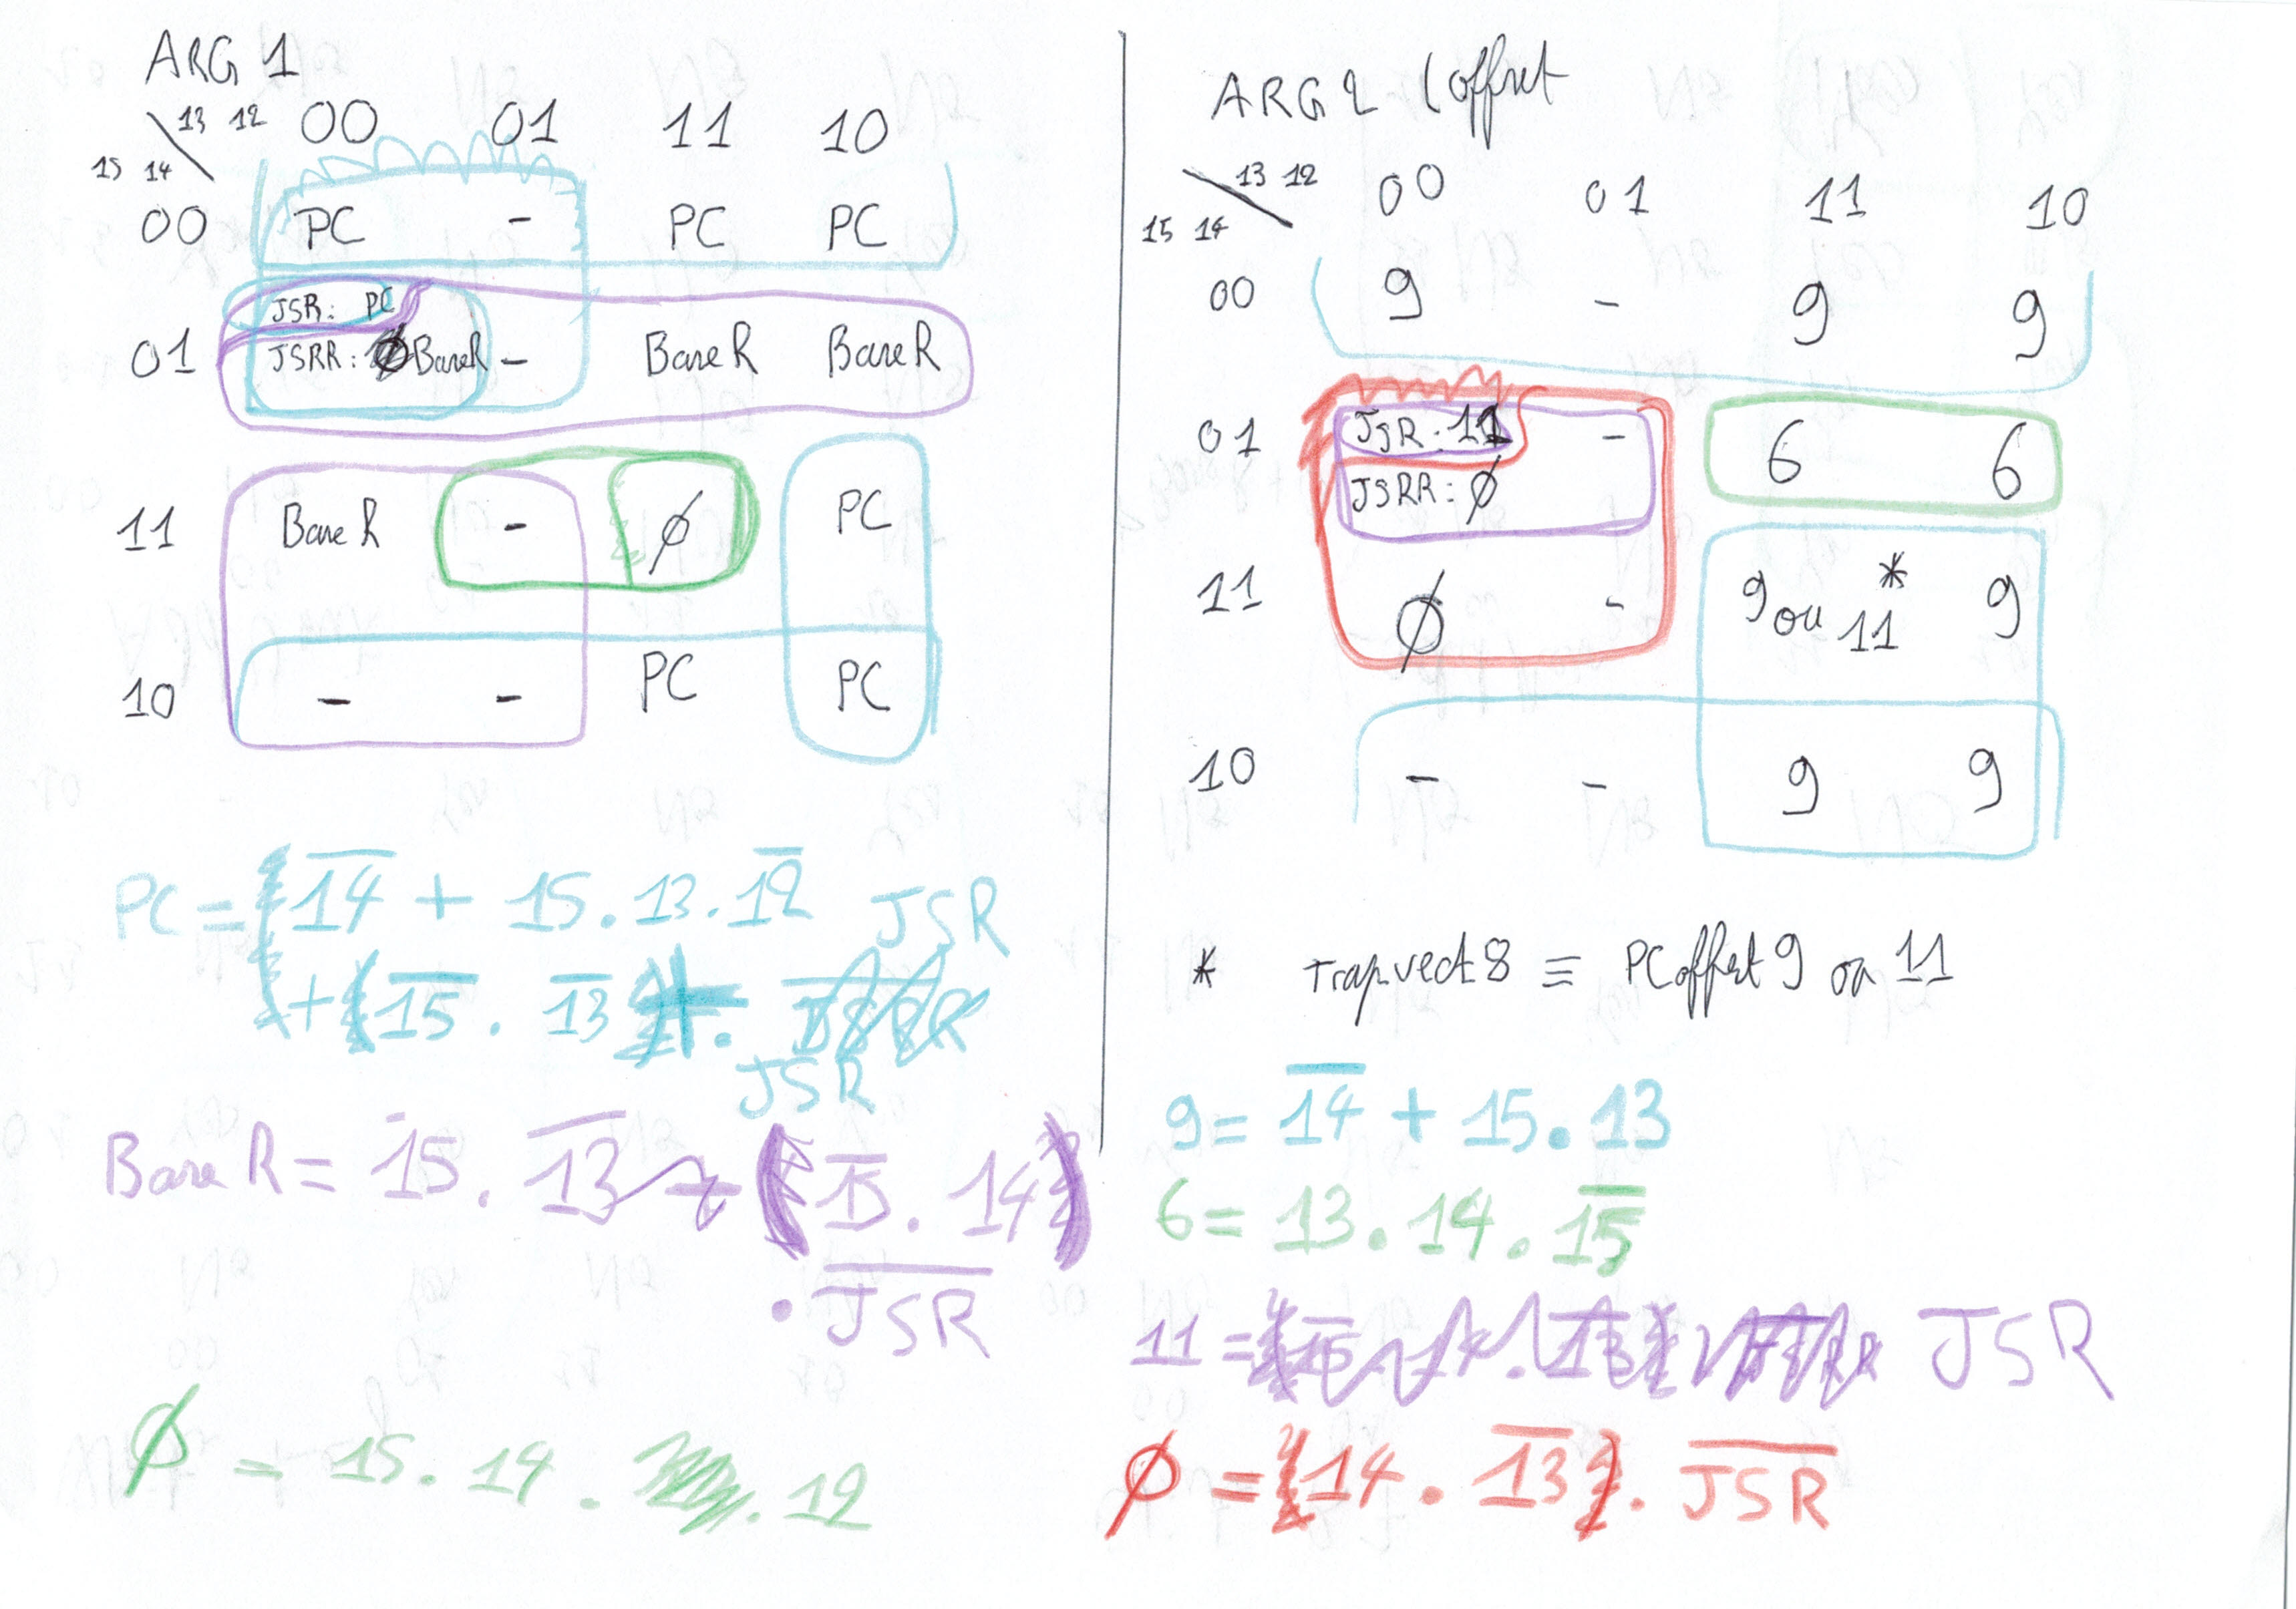 ARG 1
13 12 00 01 11 10
15 14
00 PC - PC PC
JSR: PC
01 JSRR: Ø BaseR - BaseR BaseR
11 BaseR - Ø PC
10 - - PC PC
PC = 1̅4̅ + 15 . 13 . 1̅2̅ JSR
+ 1̅5̅ . 1̅3̅ .
JSR
BaseR = 15 . 1̅3̅ + ( 1̅5̅ . 14 )
. J̅S̅R̅
Ø = 15 . 14 . . 12
ARG 2 (offset
13 12 00 01 11 10
15 14
00 9 - 9 9
01 JSR: 11 - 6 6
JSRR: Ø
11 Ø - 9 ou 11 * 9
10 - - 9 9
* Trapvect8 ≡ PCoffset9 ou 11
9 = 1̅4̅ + 15 . 13
6 = 13 . 14 . 1̅5̅
11 = JSR
Ø = (14 . 1̅3̅) . J̅S̅R̅